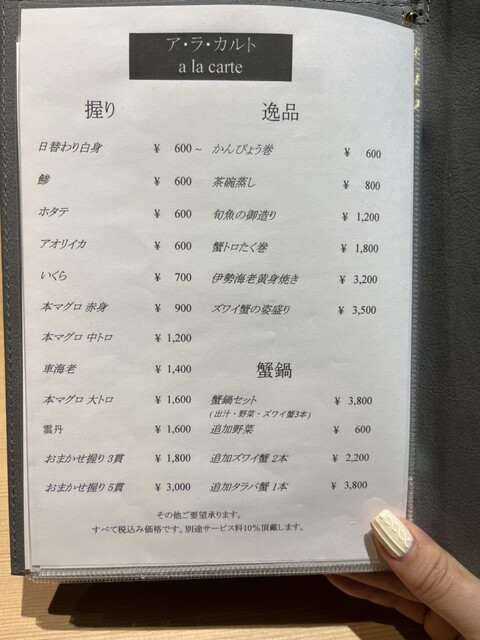 ア・ラ・カルト
a la carte
握り
日替わり白身 ¥ 600~
鯵 ¥ 600
ホタテ ¥ 600
アオリイカ ¥ 600
いくら ¥ 700
本マグロ 赤身 ¥ 900
本マグロ 中トロ ¥ 1,200
車海老 ¥ 1,400
本マグロ 大トロ ¥ 1,600
雲丹 ¥ 1,600
おまかせ握り 3貫 ¥ 1,800
おまかせ握り 5貫 ¥ 3,000
逸品
かんぴょう巻 ¥ 600
茶碗蒸し ¥ 800
旬魚の御造り ¥ 1,200
蟹トロたく巻 ¥ 1,800
伊勢海老黄身焼き ¥ 3,200
ズワイ蟹の姿盛り ¥ 3,500
蟹鍋
蟹鍋セット ¥ 3,800
(出汁・野菜・ズワイ蟹3本)
追加野菜 ¥ 600
追加ズワイ蟹 2本 ¥ 2,200
追加タラバ蟹 1本 ¥ 3,800
その他ご要望承ります。
すべて税込み価格です。別途サービス料10%頂戴します。